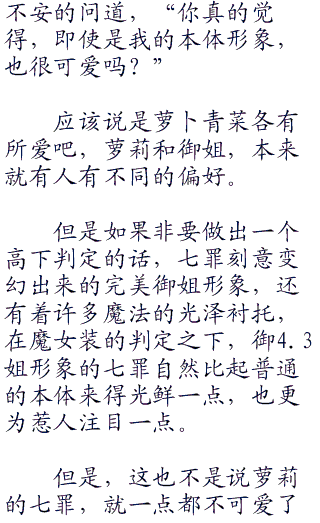 不安的问道，“你真的觉
得，即使是我的本体形象，
也很可爱吗？”
应该说是萝卜青菜各有
所爱吧，萝莉和御姐，本来
就有人有不同的偏好。
但是如果非要做出一个
高下判定的话，七罪刻意变
幻出来的完美御姐形象，还
有着许多魔法的光泽衬托，
在魔女装的判定之下，御4.3
姐形象的七罪自然比起普通
的本体来得光鲜一点，也更
为惹人注目一点。
但是，这也不是说萝莉
的七罪，就一点都不可爱了